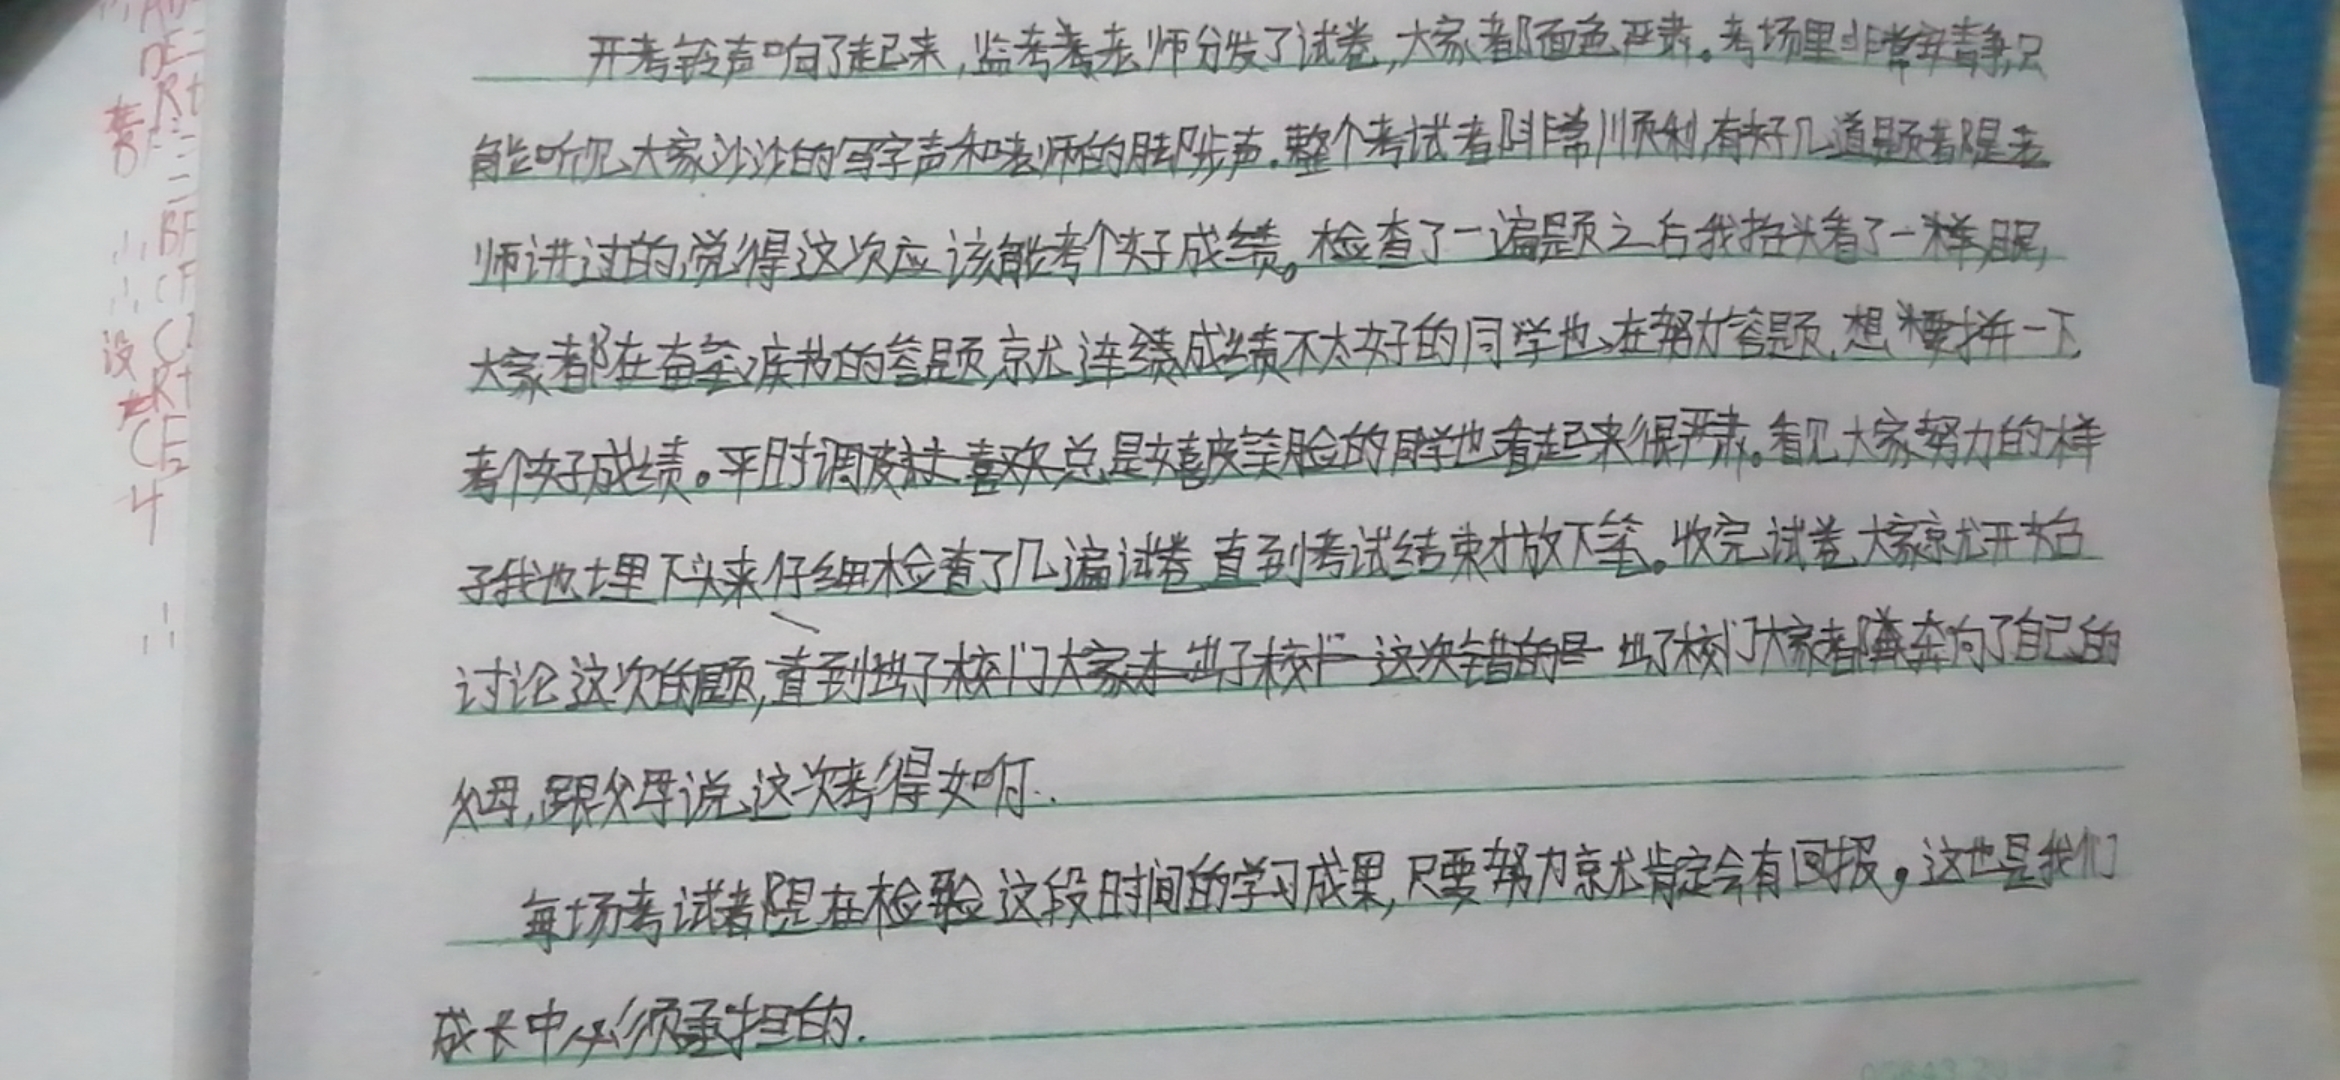 开考铃声响了起来,监考老师分发了试卷,大家都面色严肃。考场里非常安静,只
能听见大家沙沙的写字声和老师的脚步声.整个考试都非常顺利,有好几道题都是老
师讲过的,觉得这次应该能考个好成绩。检查了一遍题之后我抬头看了一眼,
大家都在奋笔疾书的答题,就连成绩不太好的同学也在努力答题,想要拼一下
考个好成绩。平时总是嬉皮笑脸的同学也看起来很严肃。看见大家努力的样
子我也埋下头来仔细检查了几遍试卷,直到考试结束才放下笔。收完试卷,大家就开始
讨论这次的题,出了校门大家都奔向了自己的
父母,跟父母说这次考得如何.
每场考试都是在检验这段时间的学习成果,只要努力就肯定会有回报,这也是我们
成长中必须承担的.
没
4